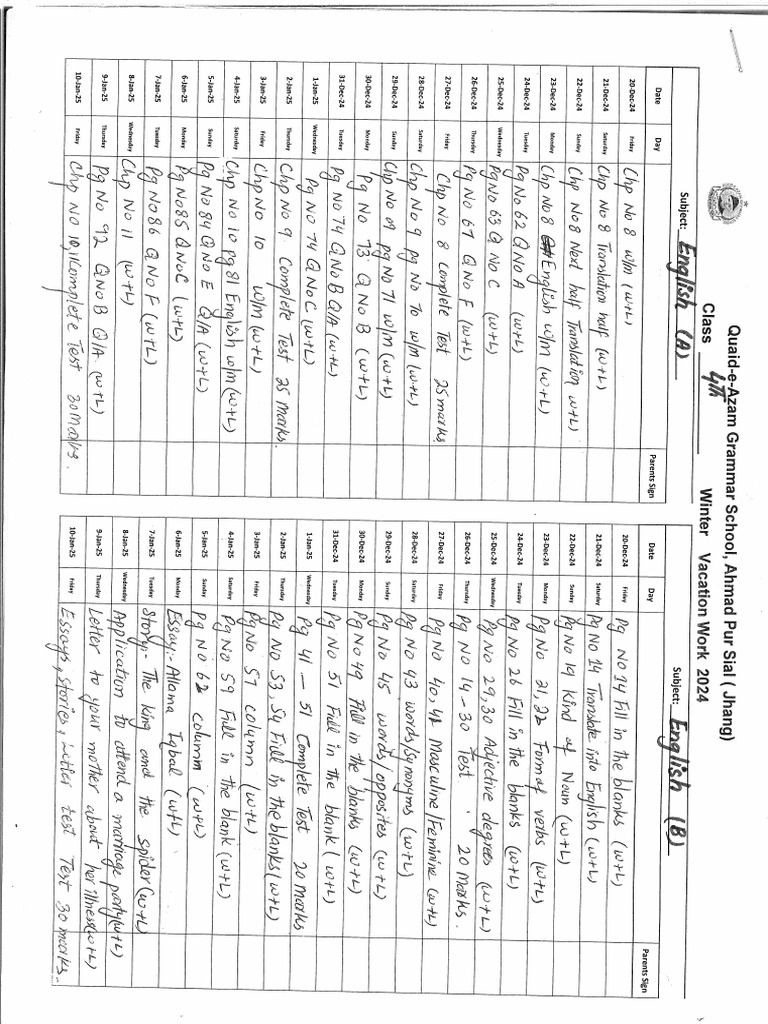 Quaid-e-Azam Grammar School, Ahmad Pur Sial ( Jhang)
Class 4th Winter Vacation Work 2024
Subject: English (A)
Date Day Parents Sign
20-Dec-24 Friday Chp No 8 w/m (w+L)
21-Dec-24 Saturday Chp No 8 Translation half (w+L)
22-Dec-24 Sunday Chp No 8 Next half Translation w+L)
23-Dec-24 Monday Chp No 8 English w/m (w+L)
24-Dec-24 Tuesday Pg No 62 Q No A (w+L)
25-Dec-24 Wednesday Pg No 63 Q No C (w+L)
26-Dec-24 Thursday Pg No 67 Q No F (w+L)
27-Dec-24 Friday Chp No 8 Complete Test 25 marks
28-Dec-24 Saturday Chp No 9 pg No 70 w/m (w+L)
29-Dec-24 Sunday Chp No 09 pg No 71 w/m (w+L)
30-Dec-24 Monday Pg No 73 Q No B (w+L)
31-Dec-24 Tuesday Pg No 74 Q No B Q/A (w+L)
1-Jan-25 Wednesday Pg No 74 Q No C (w+L)
2-Jan-25 Thursday Chp No 9 Complete Test 25 marks.
3-Jan-25 Friday Chp No 10 w/m (w+L)
4-Jan-25 Saturday Chp No 10 pg 81 English w/m (w+L)
5-Jan-25 Sunday Pg No 84 Q No E Q/A (w+L)
6-Jan-25 Monday Pg No 85 Q No C (w+L)
7-Jan-25 Tuesday Pg No 86 Q No F (w+L)
8-Jan-25 Wednesday Chp No 11 (w+L)
9-Jan-25 Thursday Pg No 92 Q No B Q/A (w+L)
10-Jan-25 Friday Chp No 10,11 Complete Test 30 Marks.
Subject: English (B)
Date Day Parents Sign
20-Dec-24 Friday Pg No 14 Fill in the blanks (w+L)
21-Dec-24 Saturday Pg No 14 Translate into English (w+L)
22-Dec-24 Sunday Pg No 19 Kind of Noun (w+L)
23-Dec-24 Monday Pg No 21, 22 Form of verbs (w+L)
24-Dec-24 Tuesday Pg No 26 Fill in the blanks (w+L)
25-Dec-24 Wednesday Pg No 29, 30 Adjective degrees (w+L)
26-Dec-24 Thursday Pg No 14-30 Test . 20 Marks.
27-Dec-24 Friday Pg No 40, 41 Masculine/Feminine (w+L)
28-Dec-24 Saturday Pg No 43 words/synonyms (w+L)
29-Dec-24 Sunday Pg No 45 words/opposites (w+L)
30-Dec-24 Monday Pg No 49 Fill in the blanks (w+L)
31-Dec-24 Tuesday Pg No 51 Fill in the blank (w+L)
1-Jan-25 Wednesday Pg 41 - 51 Complete Test 20 marks
2-Jan-25 Thursday Pg No 53, 54 Fill in the blanks (w+L)
3-Jan-25 Friday Pg No 57 column (w+L)
4-Jan-25 Saturday Pg No 59 Fill in the blank (w+L)
5-Jan-25 Sunday Pg No 62 column (w+L)
6-Jan-25 Monday Essay:- Allama Iqbal (w+L)
7-Jan-25 Tuesday Story:- The king and the spider (w+L)
8-Jan-25 Wednesday Application to attend a marriage party (w+L)
9-Jan-25 Thursday Letter to your mother about her illness (w+L)
10-Jan-25 Friday Essays, stories, letter test Test 30 marks.